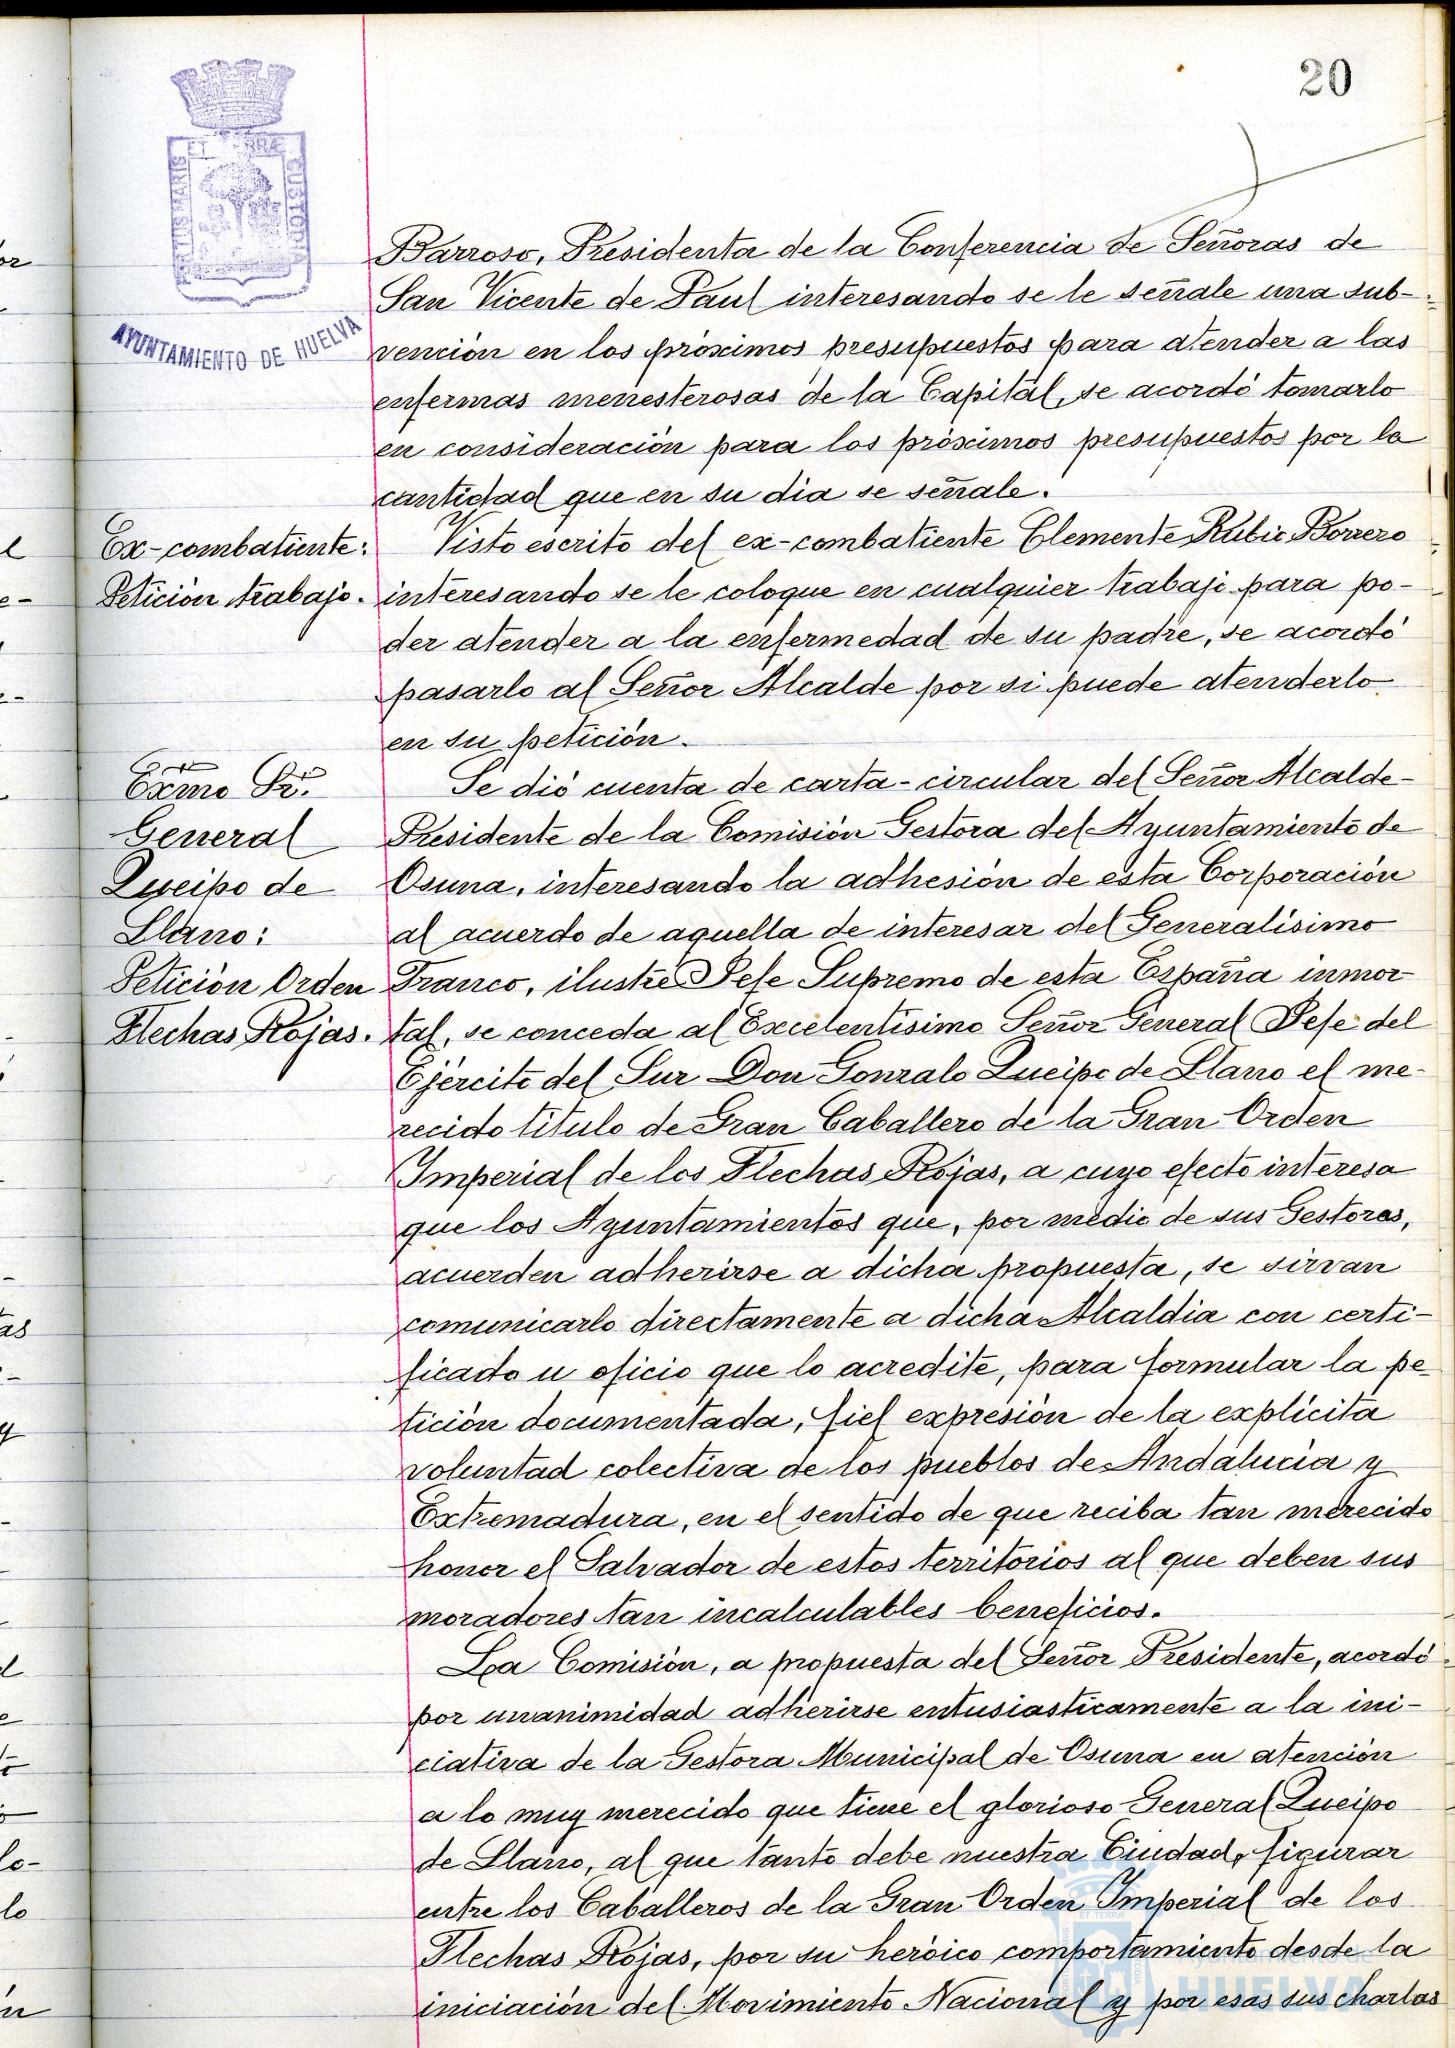 20
AYUNTAMIENTO DE HUELVA
Barroso, Presidenta de la Conferencia de Señoras de
San Vicente de Paul interesando se le señale una sub-
vención en los próximos presupuestos para atender a las
enfermas menesterosas de la Capital, se acordó tomarlo
en consideración para los próximos presupuestos por la
cantidad que en su dia se señale.
Ex-combatiente:
Petición trabajo.
Visto escrito del ex-combatiente Clemente Rubio Borrero
interesando se le coloque en cualquier trabajo para po-
der atender a la enfermedad de su padre, se acordó
pasarlo al Señor Alcalde por si puede atenderlo
en su petición.
Exmo Sr.
General
Queipo de
Llano:
Petición Orden
Flechas Rojas.
Se dió cuenta de carta-circular del Señor Alcalde-
Presidente de la Comisión Gestora del Ayuntamiento de
Osuna, interesando la adhesión de esta Corporación
al acuerdo de aquella de interesar del Generalísimo
Franco, ilustre Jefe Supremo de esta España inmor
tal, se conceda al Excelentísimo Señor General Jefe del
Ejército del Sur Don Gonzalo Queipo de Llano el me-
recido título de Gran Caballero de la Gran Orden
Imperial de los Flechas Rojas, a cuyo efecto interesa
que los Ayuntamientos que, por medio de sus Gestoras,
acuerden adherirse a dicha propuesta, se sirvan
comunicarlo directamente a dicha Alcaldia con certi-
ficado u oficio que lo acredite, para formular la pe-
tición documentada, fiel expresión de la explícita
voluntad colectiva de los pueblos de Andalucia y
Extremadura, en el sentido de que reciba tan merecido
honor el Salvador de estos territorios al que deben sus
moradores tan incalculables beneficios.
La Comisión, a propuesta del Señor Presidente, acordó
por unanimidad adherirse entusiasticamente a la ini-
ciativa de la Gestora Municipal de Osuna en atención
a lo muy merecido que tiene el glorioso General Queipo
de Llano, al que tanto debe nuestra Ciudad, figurar
entre los Caballeros de la Gran Orden Imperial de los
Flechas Rojas, por su heróico comportamiento desde la
iniciación del Movimiento Nacional y por esas sus charlas
Ayuntamiento de
HUELVA